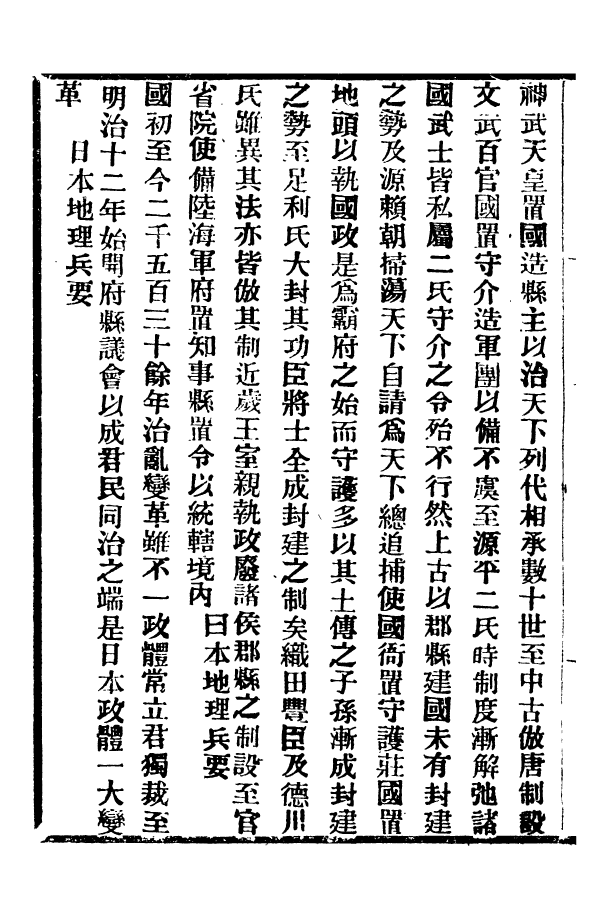 神武天皇置國造縣主以治天下列代相承數十世至中古倣唐制設
文武百官國置守介造軍團以備不虞至源平二氏時制度漸解弛諸
國武士皆私屬二氏守介之令殆不行然上古以郡縣建國未有封建
之勢及源賴朝掃蕩天下自請爲天下總追捕使國衙置守護莊國置
地頭以執國政是爲霸府之始而守護多以其土傳之子孫漸成封建
之勢至足利氏大封其功臣將士全成封建之制矣織田豐臣及德川
氏雖異其法亦皆倣其制近歲王室親執政廢諸侯郡縣之制設至官
省院使備陸海軍府置知事縣置令以統轄境內 日本地理兵要
國初至今二千五百三十餘年治亂變革雖不一政體常立君獨裁至
明治十二年始開府縣議會以成君民同治之端是日本政體一大變
革 日本地理兵要